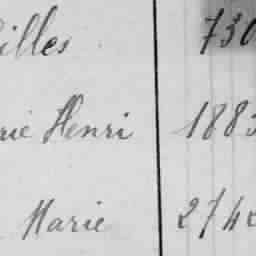 illes 730
rie Henri 1883
Marie 274